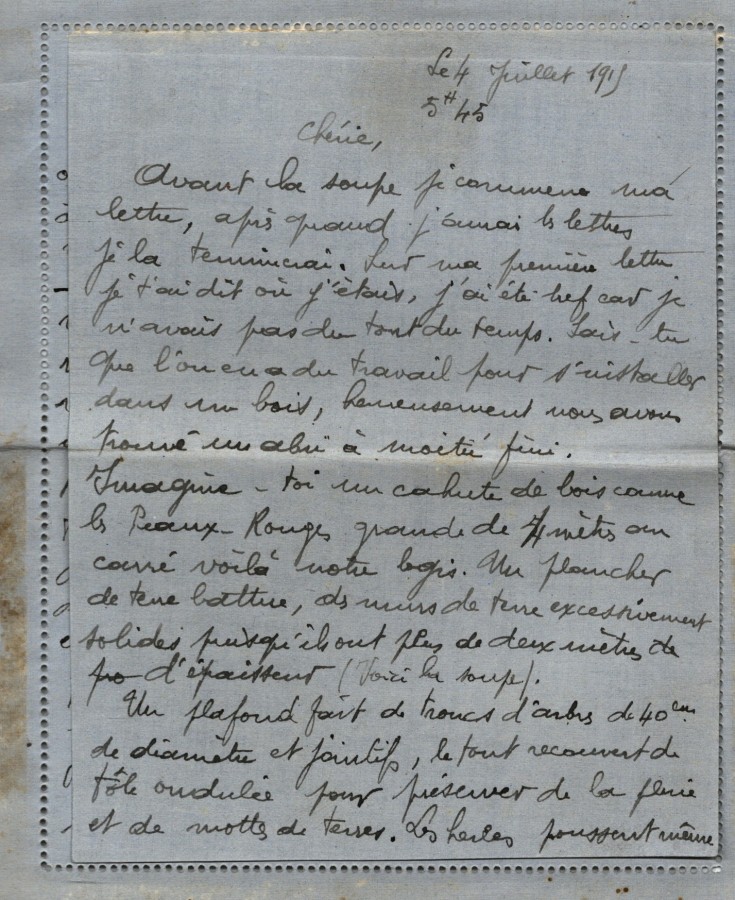 Le 4 Juillet 1915
5H45
Chérie,
Avant la soupe je commence ma
lettre, après quand j'aurai les lettres
je la terminerai. Sur ma première lettre
je t'ai dit où j'étais, j'ai été bref car je
n'avais pas du tout du temps. Sais-tu
que l'on en a du travail pour s'installer
dans un bois, heureusement nous avons
trouvé un abri à moitié fini.
Imagine-toi un cahute de bois comme
les Peaux-Rouges grande de 4 mètres au
carré voilà notre logis. Un plancher
de terre battue, des murs de terre excessivement
solides puisqu'ils ont plus de deux mètres de
pro d'épaisseur (Voici la soupe).
Un plafond fait de troncs d'arbres de 40 cm
de diamètre et jointifs, le tout recouvert de
tôle ondulée pour préserver de la pluie
et de mottes de terres. Les herbes poussent même